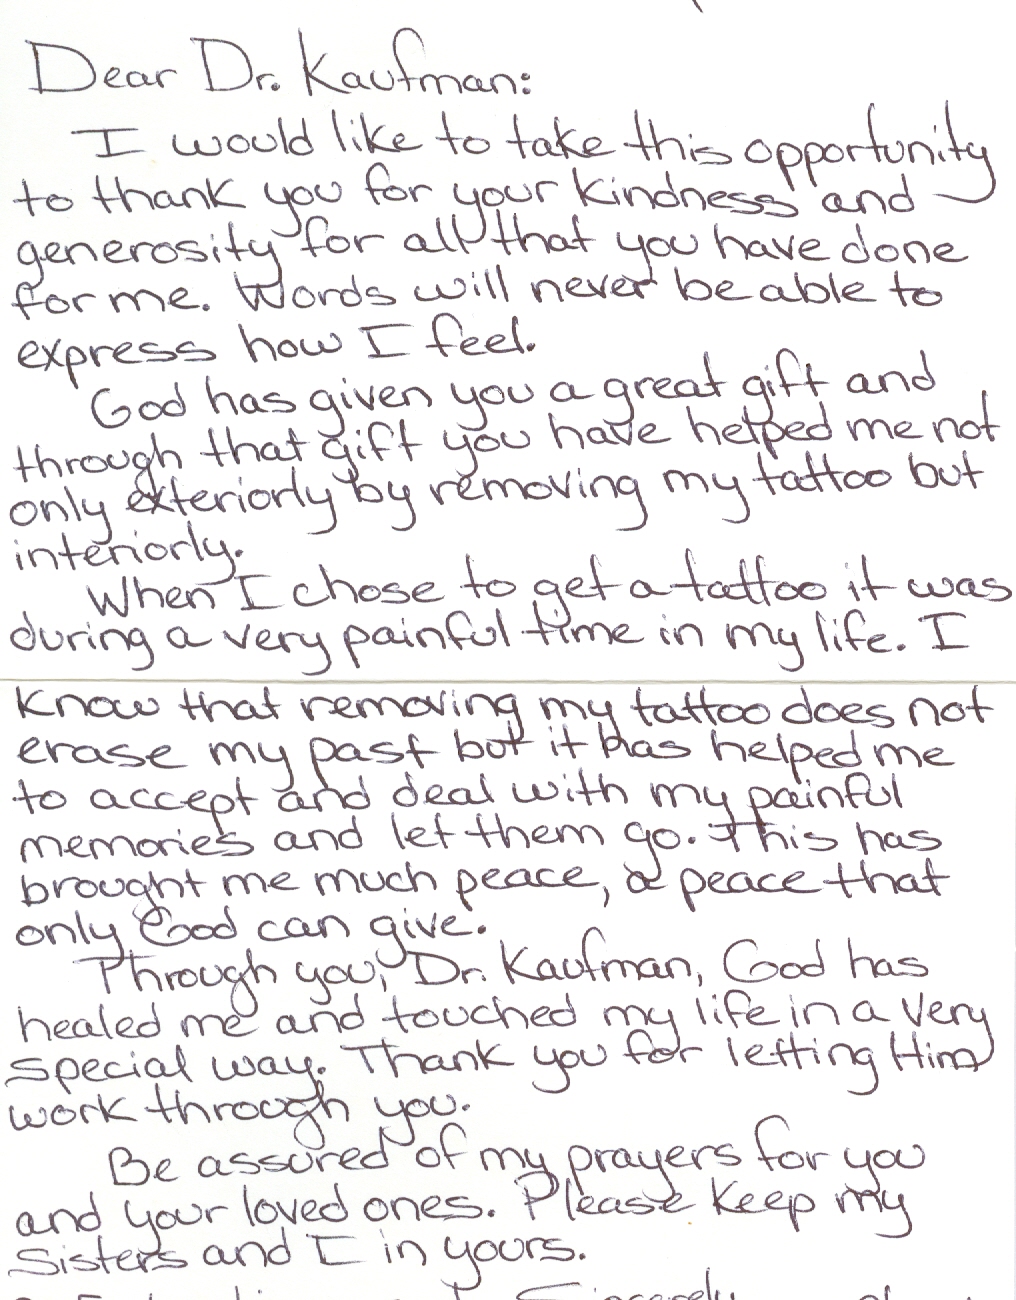 Dear Dr. Kaufman:
I would like to take this opportunity
to thank you for your kindness and
generosity for all that you have done
for me. Words will never be able to
express how I feel.
God has given you a great gift and
through that gift you have helped me not
only exteriorly by removing my tattoo but
interiorly.
When I chose to get a tattoo it was
during a very painful time in my life. I
know that removing my tattoo does not
erase my past but it has helped me
to accept and deal with my painful
memories and let them go. This has
brought me much peace, a peace that
only God can give.
Through you, Dr. Kaufman, God has
healed me and touched my life in a very
special way. Thank you for letting Him
work through you.
Be assured of my prayers for you
and your loved ones. Please keep my
Sisters and I in yours.
Sincerely